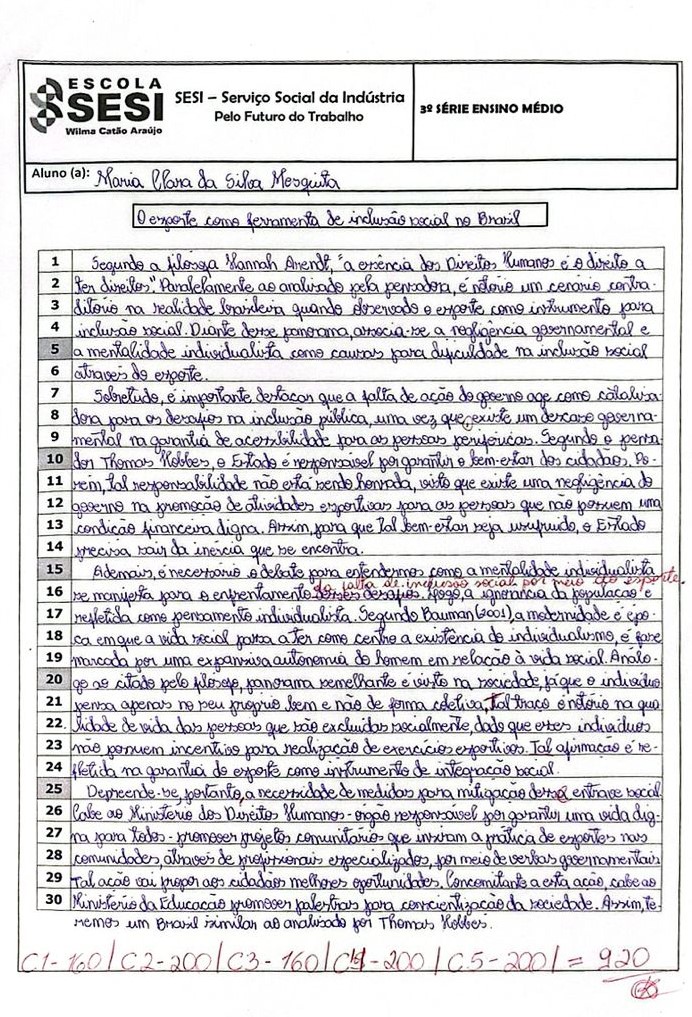 ESCOLA
SESI
Wilma Catão Araújo
SESI – Serviço Social da Indústria
Pelo Futuro do Trabalho
3º SÉRIE ENSINO MÉDIO
Aluno (a): Maria Clara da Silva Mesquita
O esporte como ferramenta de inclusão social no Brasil
1 Segundo a filósofa Hannah Arendt, "a essência dos Direitos Humanos é o direito a
2 ter direitos". Paralelamente ao analisado pela pensadora, é notório um cenário contra-
3 ditório na realidade brasileira quando observado o esporte como instrumento para
4 inclusão social. Diante desse panorama, associa-se a negligência governamental e
5 a mentalidade individualista como causas para dificuldade na inclusão social
6 através do esporte.
7 Sobretudo, é importante destacar que a falta de ação do governo age como cataliza-
8 dora para os desafios na inclusão pública, uma vez que, existe um descaso governa-
9 mental na garantia de acessibilidade para as pessoas periféricas. Segundo o pensa-
10 dor Thomas Hobbes, o Estado é responsável por garantir o bem-estar dos cidadãos. Po-
11 rém, tal responsabilidade não está sendo honrada, visto que existe uma negligência do
12 governo na promoção de atividades esportivas para as pessoas que não possuem uma
13 condição financeira digna. Assim, para que tal bem-estar seja usufruido, o Estado
14 precisa sair da inércia que se encontra.
15 Ademais, é necessário o debate para entendermos como a mentalidade individualista
da falta de inclusão social por meio do esporte.
16 se manifesta para o enfrentamento desses desafios. Logo, a ignorância da população é
17 refletida como pensamento individualista. Segundo Bauman (2001), a modernidade é épo-
18 ca em que a vida social passa a ter como centro a existência do individualismo, é fase
19 marcada por uma expansiva autonomia do homem em relação à vida social. Análo-
20 go ao citado pelo filósofo, panorama semelhante é visto na sociedade, já que o indivíduo
21 pensa apenas no seu proprio bem e não de forma coletiva. Tal traço é notório na qua
22 lidade de vida das pessoas que são excluidas socialmente, dado que esses indivíduos
23 não possuem incentivo para realização de exercícios esportivos. Tal afirmação é re-
24 fletida na garantia do esporte como instrumento de integração social.
25 Depreende-se, portanto, a necessidade de medidas para mitigação desse entrave social.
26 Cabe ao Ministério dos Direitos Humanos - orgão responsável por garantir uma vida dig-
27 na para todos - promover projetos comunitários que insiram a prática de esportes nas
28 comunidades, através de profissionais especializados, por meio de verbas governamentais
29 Tal ação vai propor aos cidadãos melhores oportunidades. Concomitante a esta ação, cabe ao
30 Ministério da Educação promover palestras para conscientização da sociedade. Assim, te-
remos um Brasil similar ao analisado por Thomas Hobbes.
C1-160 | C2-200 | C3-160 | C4-200 | C5-200 | = 920